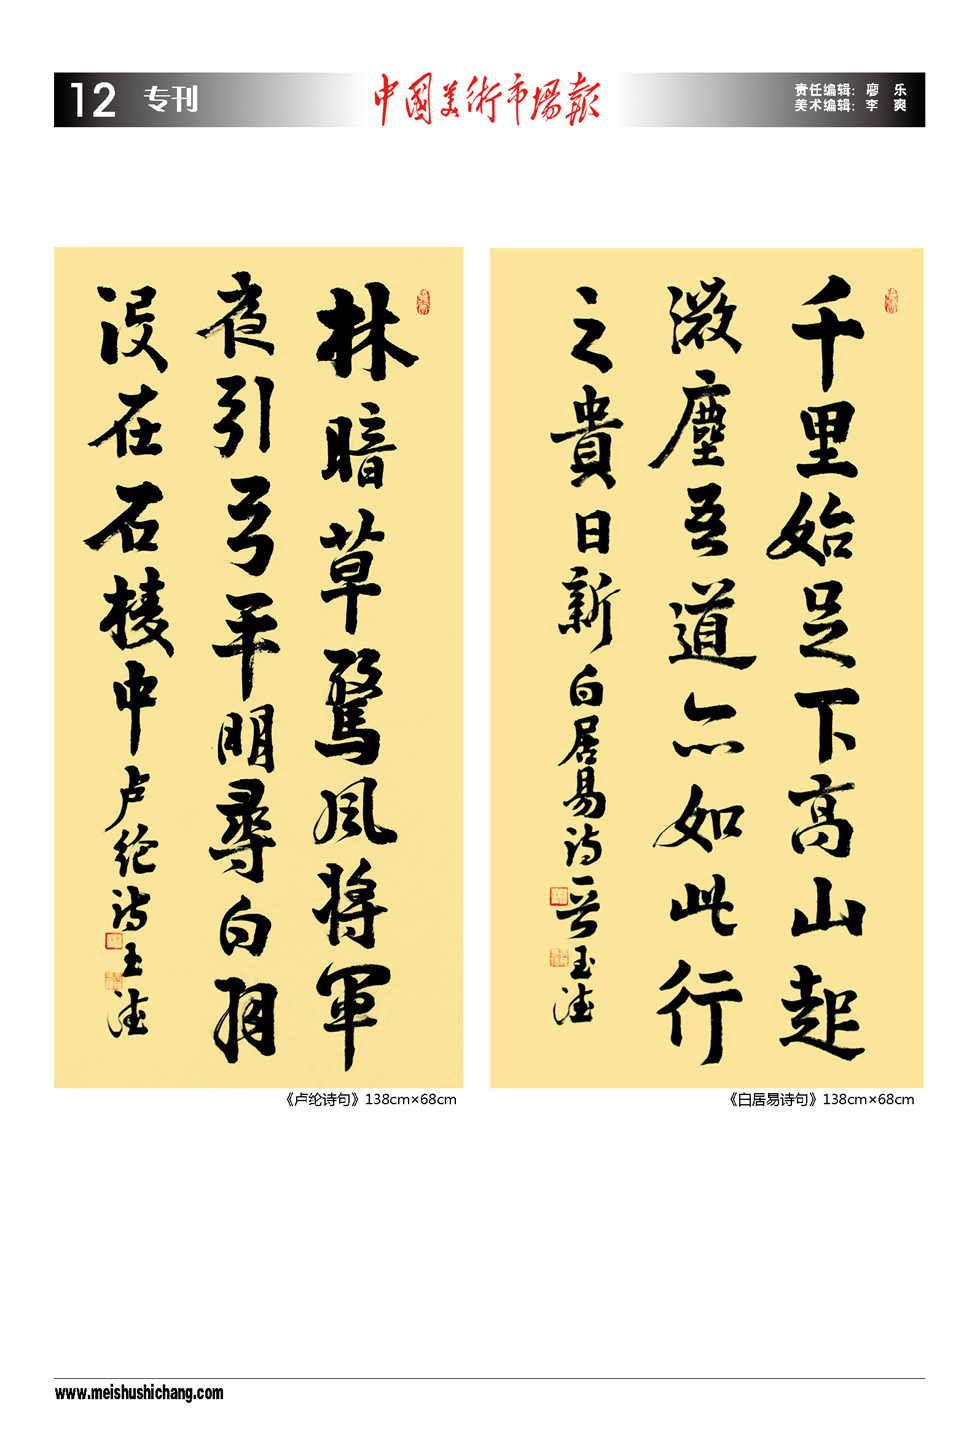 12 专刊
中國美術市場報
责任编辑：廖 乐
美术编辑：李 爽
林暗草驚风将軍
夜引弓平明尋白羽
没在石棱中卢纶诗玉德
《卢纶诗句》138cm×68cm
千里始足下高山起
微塵吾道亦如此行
之貴日新白居易诗晋玉德
《白居易诗句》138cm×68cm
www.meishushichang.com